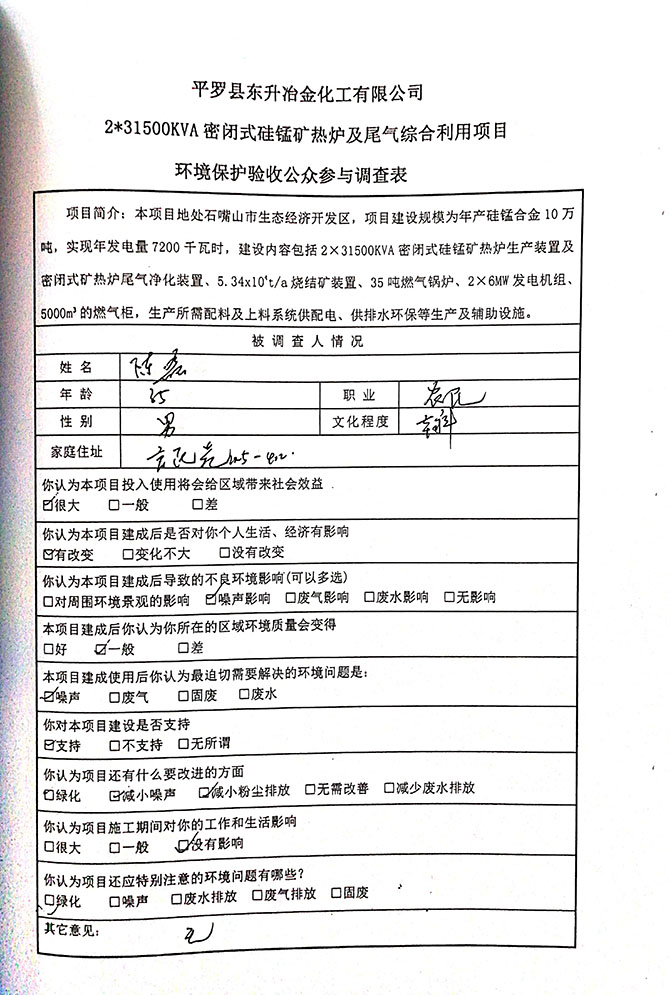 平罗县东升冶金化工有限公司
2*31500KVA 密闭式硅锰矿热炉及尾气综合利用项目
环境保护验收公众参与调查表
项目简介：本项目地处石嘴山市生态经济开发区，项目建设规模为年产硅锰合金 10 万
吨，实现年发电量 7200 千瓦时，建设内容包括 2×31500KVA 密闭式硅锰矿热炉生产装置及
密闭式矿热炉尾气净化装置、5.34x10⁴t/a 烧结矿装置、35 吨燃气锅炉、2×6MW 发电机组、
5000m³的燃气柜，生产所需配料及上料系统供配电、供排水环保等生产及辅助设施。
被调查人情况
姓名 陈
年龄 职业 农民
性别 男 文化程度
家庭住址
你认为本项目投入使用将会给区域带来社会效益
☑很大 □一般 □差
你认为本项目建成后是否对你个人生活、经济有影响
☑有改变 □变化不大 □没有改变
你认为本项目建成后导致的不良环境影响(可以多选)
□对周围环境景观的影响 ☑噪声影响 □废气影响 □废水影响 □无影响
本项目建成后你认为你所在的区域环境质量会变得
□好 ☑一般 □差
本项目建成使用后你认为最迫切需要解决的环境问题是:
☑噪声 □废气 □固废 □废水
你对本项目建设是否支持
☑支持 □不支持 □无所谓
你认为项目还有什么要改进的方面
□绿化 ☑减小噪声 ☑减小粉尘排放 □无需改善 □减少废水排放
你认为项目施工期间对你的工作和生活影响
□很大 □一般 ☑没有影响
你认为项目还应特别注意的环境问题有哪些?
☑绿化 □噪声 □废水排放 □废气排放 □固废
其它意见: 无